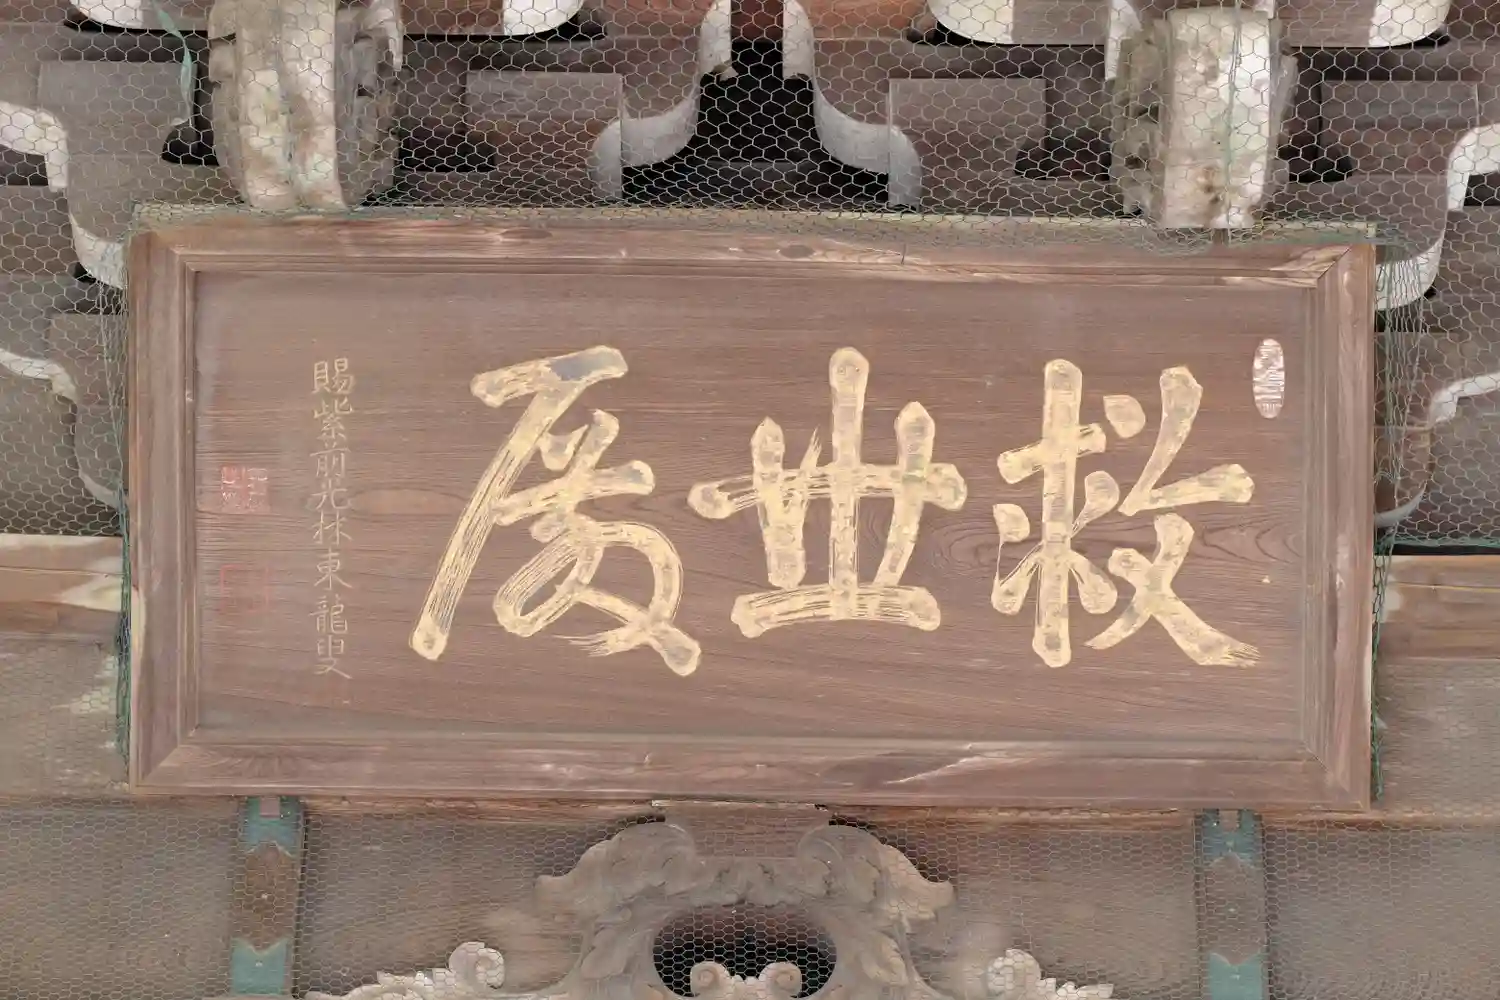 救世
賜紫前光林東龍叟